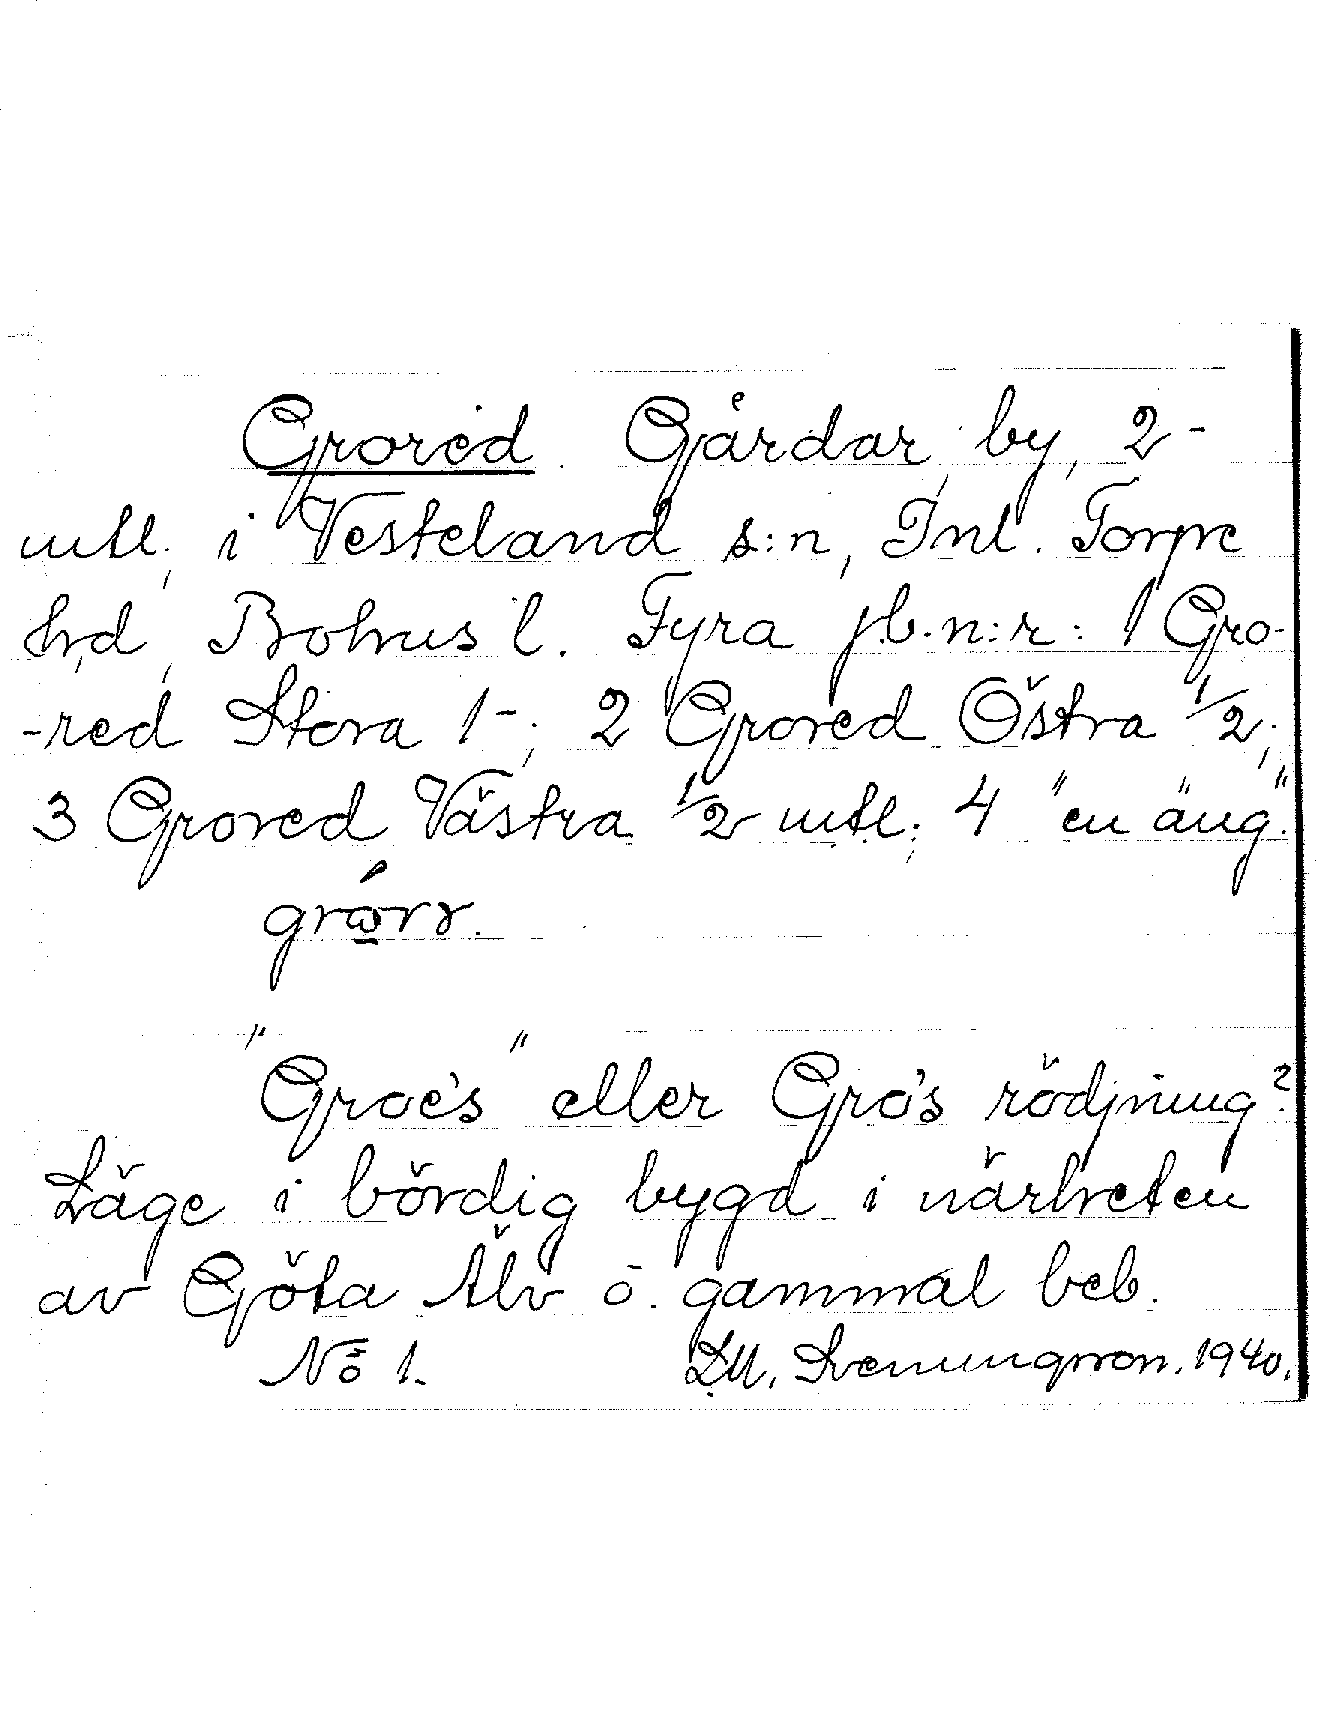 Grored. Gårdar, by, 2-
mtl. i Vesteland s:n, Inl. Torpe
hd, Bohus l. Fyra jb.n:r: 1 Gro-
-red Stora 1-; 2 Grored Östra 1/2;
3 Grored Västra 1/2 mtl; 4 "en äng".

"Groe's" eller Gro's rödjning?
Läge i bördig bygd i närheten
av Göta Älv o. gammal beb.
No 1. 1940.